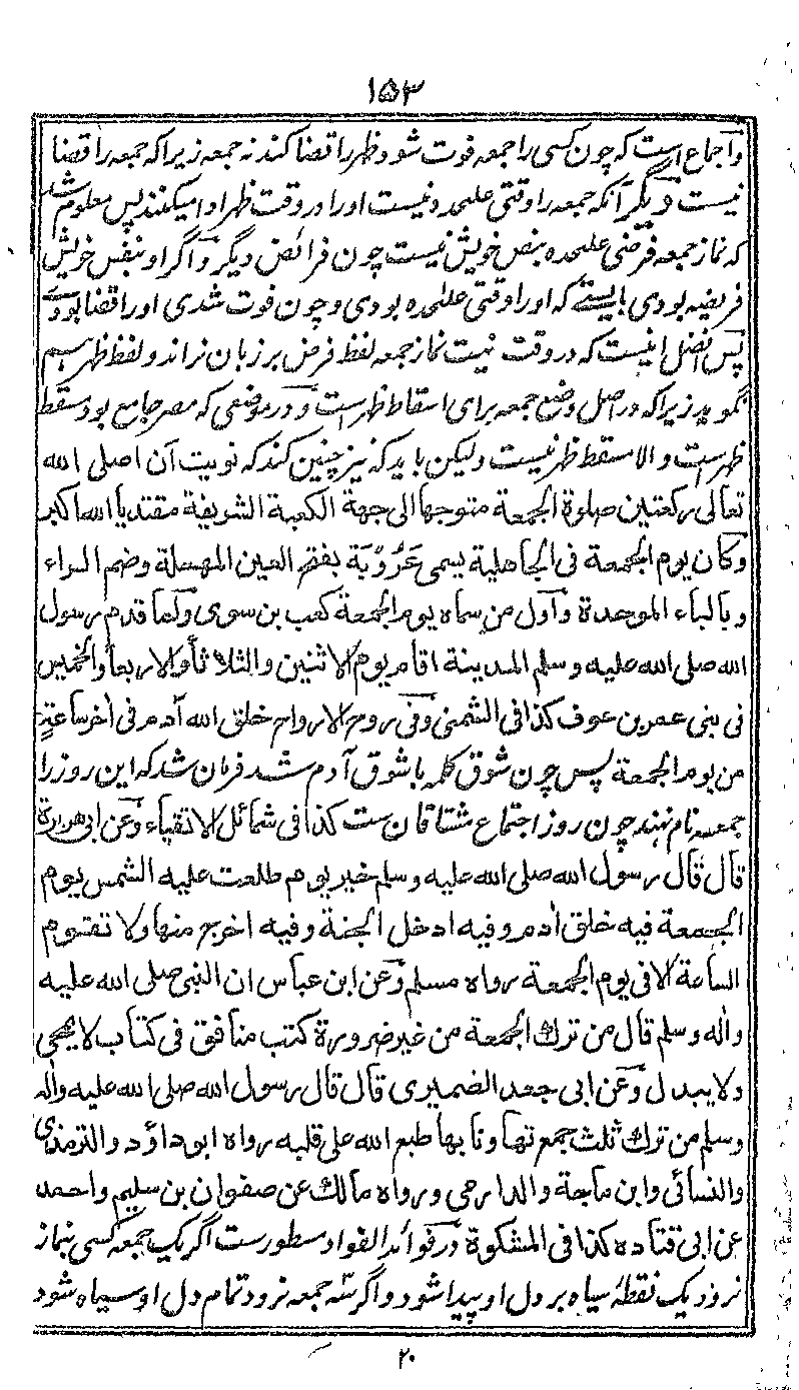 ۱۵۳
واجماع است که چون کسی را جمعه فوت شود ظهر را قضا کند نه جمعه زیرا که جمعه را قضا
نیست دیگر آنکه جمعه را وقتی علیحده نیست او را در وقت ظهر ادا میکنند پس معلوم شد
که نماز جمعه فرضی علیحده بنفس خویش نیست چون فرائض دیگر و اگر او بنفس خویش
فریضه بودی بایستے که او را وقتی علیحده بودی و چون فوت شدی او را قضا بودے
پس افضل اینست که در وقت نیت نماز جمعه لفظ فرض بر زبان نراند و لفظ ظهر هم
نگوید زیرا که در اصل وضع جمعه برای اسقاط ظهر است و در موضعی که مصر جامع بود مسقط
ظهر است والا مسقط ظهر نیست ولیکن باید که نیز چنین کند که نویت آن اصلی الله
تعالی رکعتین صلوة الجمعة متوجها الی جهة الکعبة الشریفة مقتدیا الله اکبر
وکان یوم الجمعة فی الجاهلیة یسمی عَرُوْبَة بفتح العین المهملة وضم الراء
وبالباء الموحدة واول من سماه یوم الجمعة کعب بن سوی ولما قدم رسول
الله صلی الله علیه وسلم المدینة اقام یوم الاثنین والثلاثا والاربعا والخمیس
فی بنی عمر بن عوف کذا فی الشمنی وفی روح الارواح خلق الله آدم فی اخر ساعةٍ
من یوم الجمعة پس چون شوق کلمه با شوق آدم شد فرمان شد که این روز را
جمعه نام نهند چون روز اجتماع مشتاقان ست کذا فی شمائل الاتقیاء وعن ابی هریرة
قال قال رسول الله صلی الله علیه وسلم خیر یوم طلعت علیه الشمس یوم
الجمعة فیه خلق آدم وفیه ادخل الجنة وفیه اخرج منها ولا تقوم
الساعة الا فی یوم الجمعة رواه مسلم وعن ابن عباس ان النبی صلی الله علیه
واله وسلم قال من ترك الجمعة من غیر ضرورة کتب منافق فی کتاب لا یمحی
ولا یبدل وعن ابی جعد الضمیری قال قال رسول الله صلی الله علیه واله
وسلم من ترك ثلث جمع تهاونا بها طبع الله علی قلبه رواه ابو داؤد والترمذی
والنسائی وابن ماجة والدارمی ورواه مالك عن صفوان بن سلیم واحمد
عن ابی قتاده کذا فی المشکوة در فوائد الفواد مسطورست اگر یک جمعه کسی نماز
نرود یک نقطۂ سیاه بر دل او پیدا شود و اگر سه جمعه نرود تمام دل او سیاه شود
۲۰